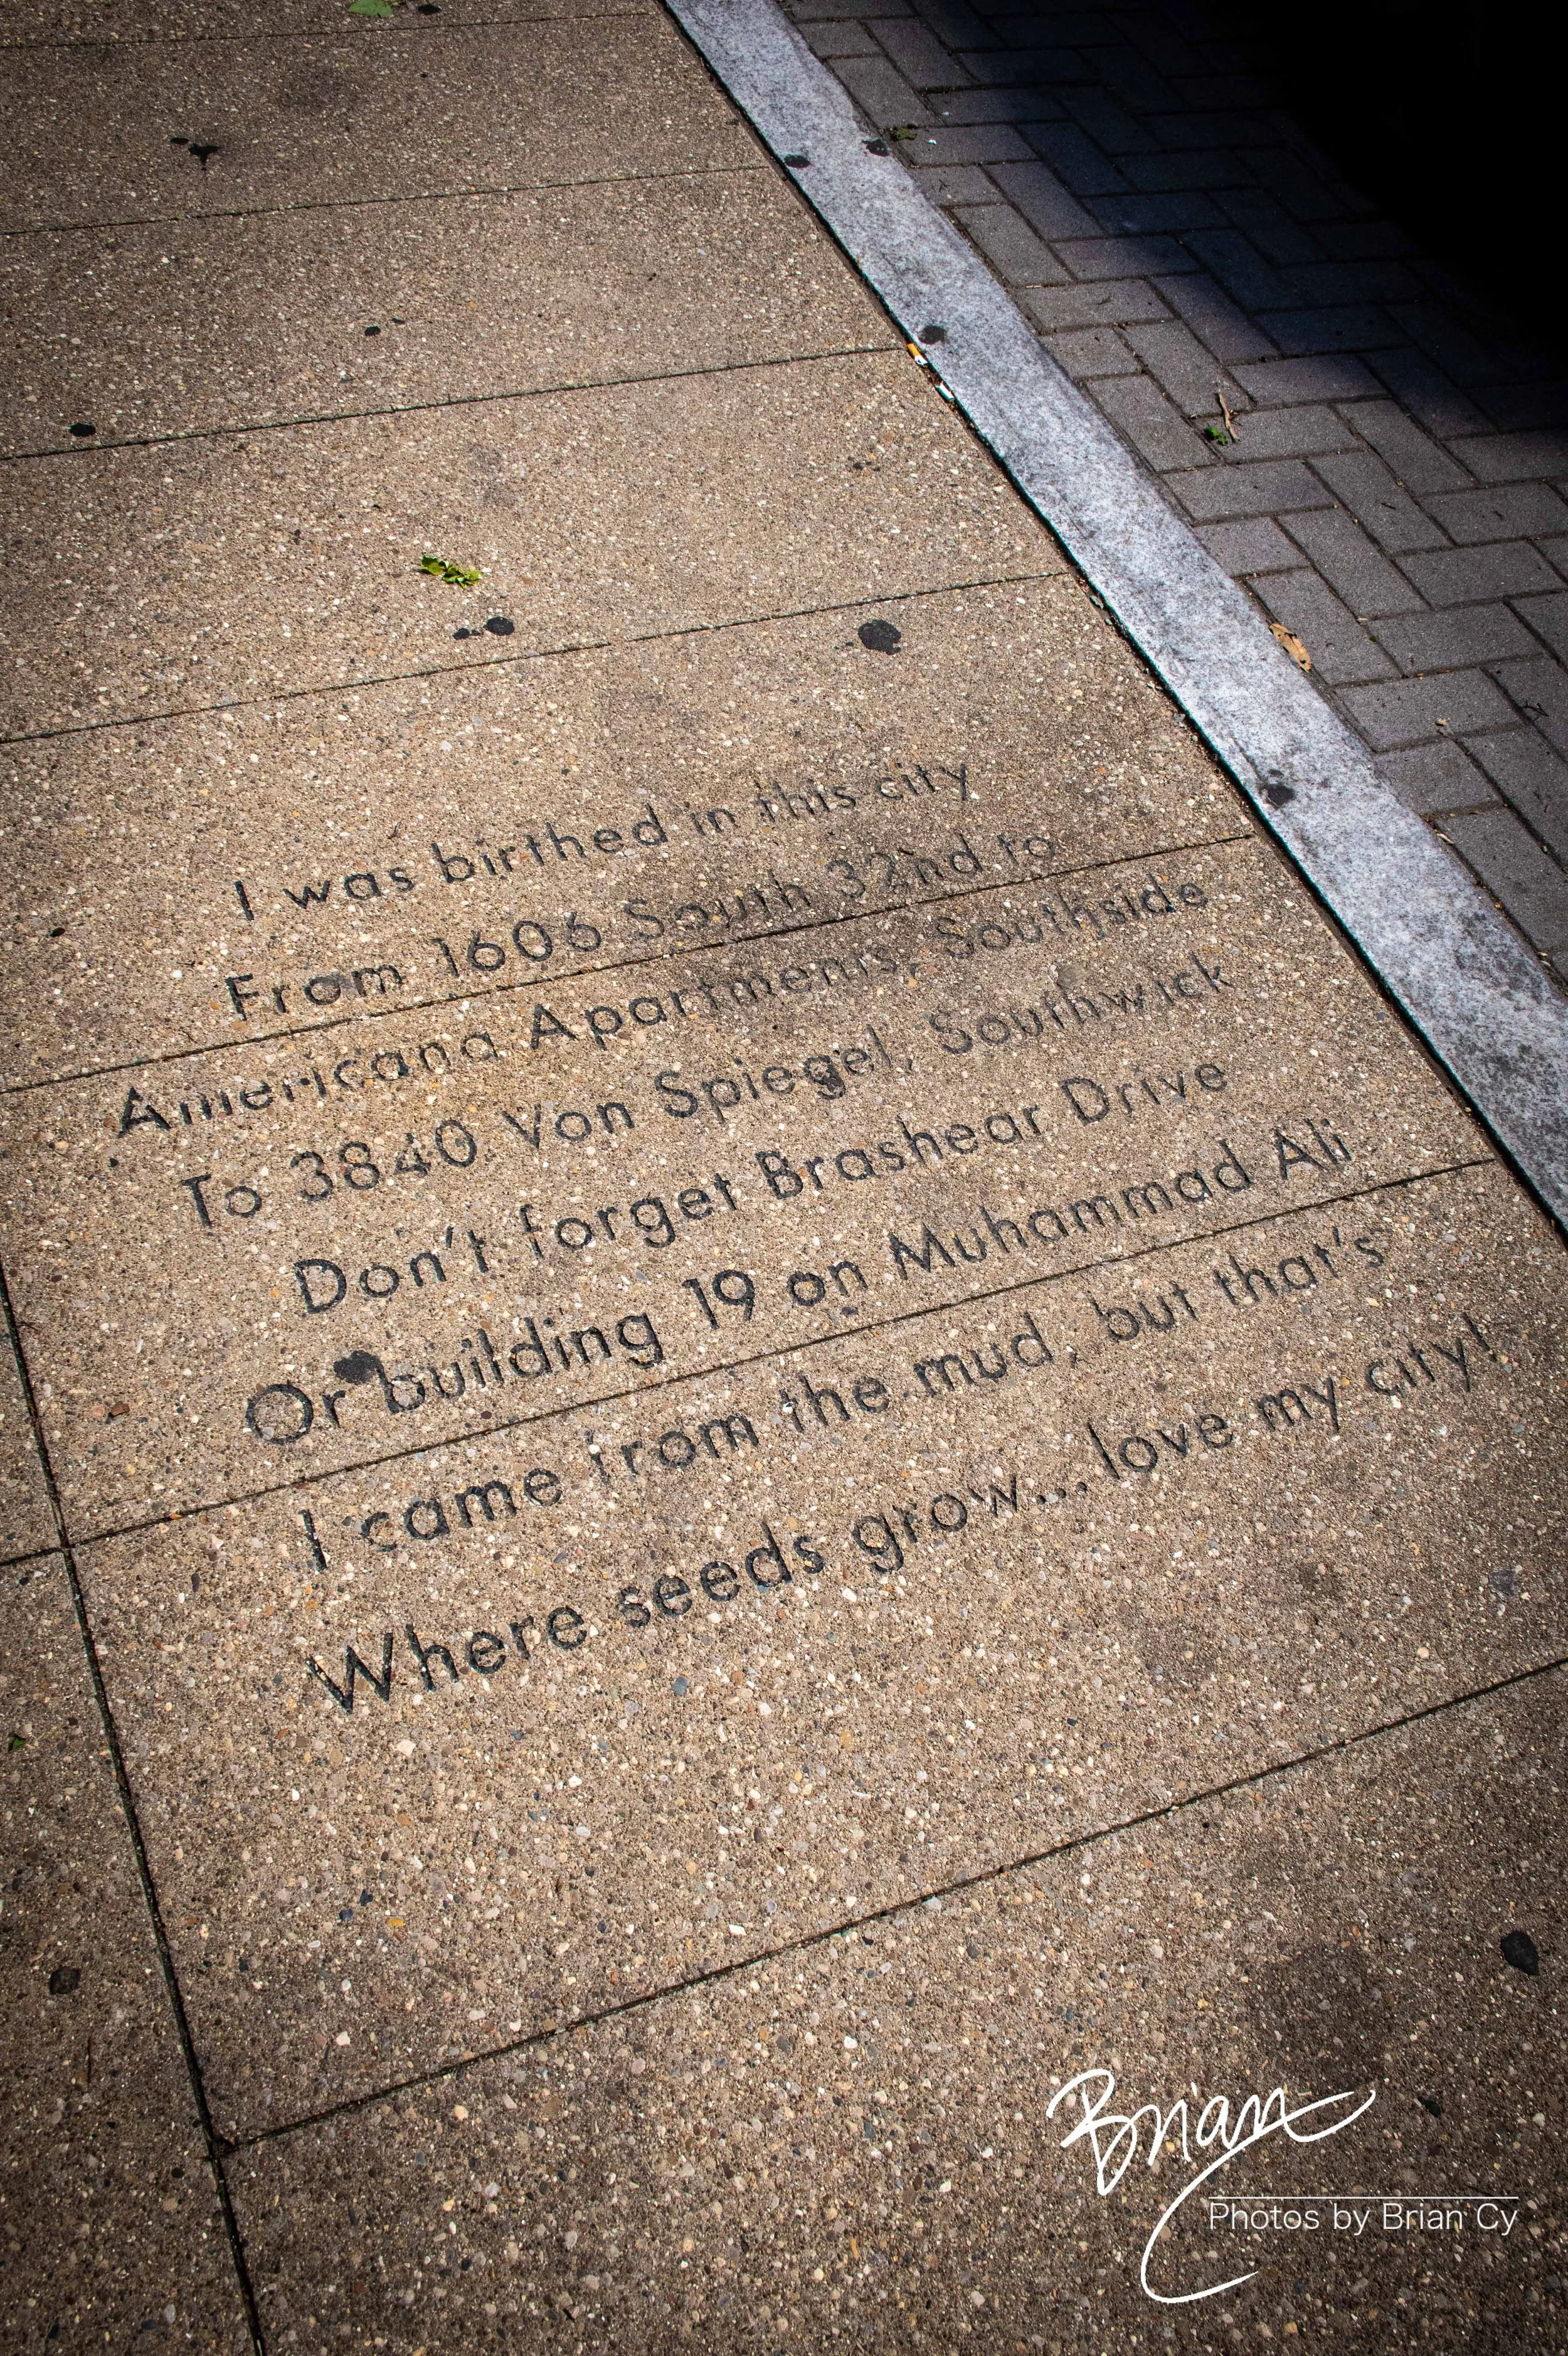 I was birthed in this city
From 1606 South 32nd to
Americana Apartments, Southside
To 3840 Von Spiegel, Southwick
Don't forget Brashear Drive
Or building 19 on Muhammad Ali
I came from the mud, but that's
Where seeds grow... love my city!
Brian
Photos by Brian Cy